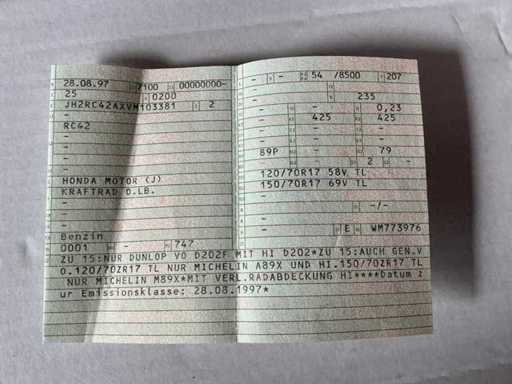 28.08.97 7100 00000000-
25 0200
JH2RC42AXVM103381 2
-
RC42
-
-
-
HONDA MOTOR (J)
KRAFTRAD O.LB.
-
-
Benzin
0001 - 747
- - 54 /8500 207
-
- 235
- - 0,23
- 425 - 425
- -
- -
89P - 79
- 2 -
120/70R17 58V TL
150/70R17 69V TL
-
-
- E WM773976
ZU 15:NUR DUNLOP VO D202F MIT HI D202*ZU 15:AUCH GEN.V
O.120/70ZR17 TL NUR MICHELIN A89X UND HI.150/70ZR17 TL
NUR MICHELIN M89X*MIT VERL.RADABDECKUNG HI****Datum z
ur Emissionsklasse: 28.08.1997*